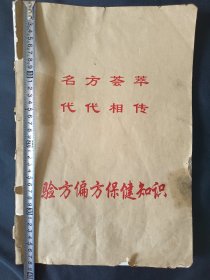 名方荟萃
代代相传
验方偏方保健知识